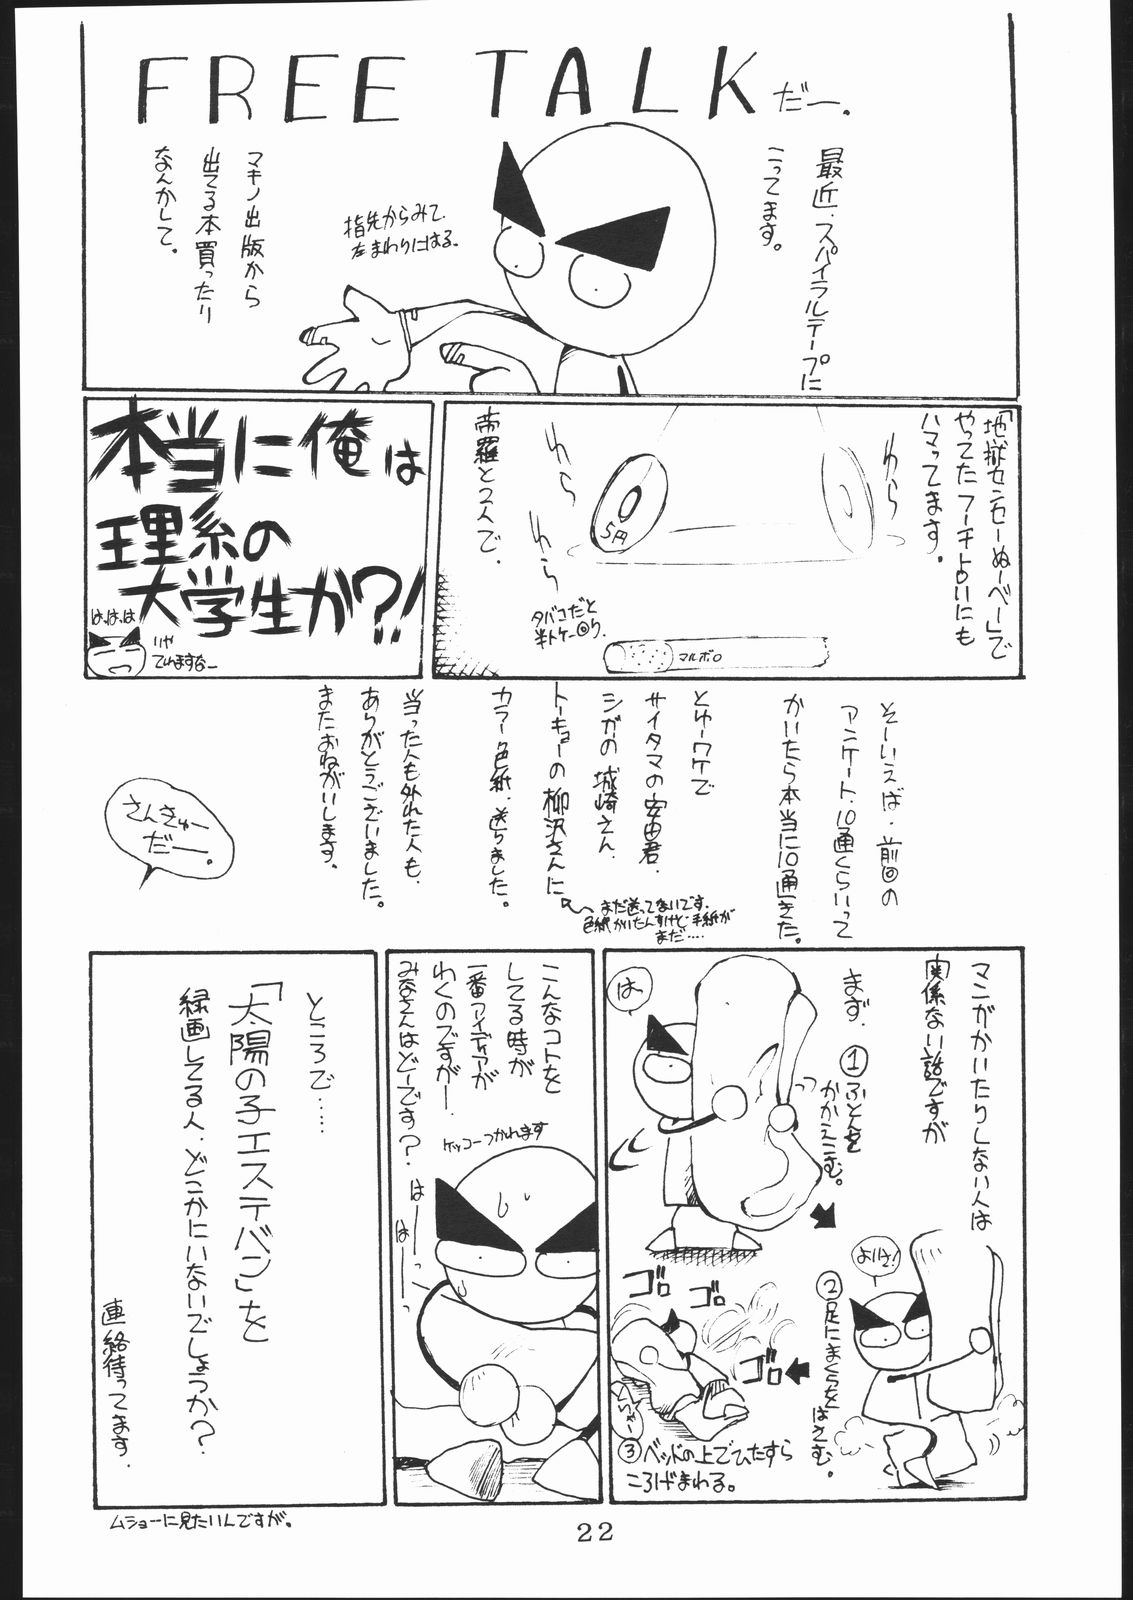 FREE TALKだー。
最近、スパイラルテープに
こってます。
指先からみて、
左まわりにはる。
マキノ出版から
出てる本買ったり
なんかして。
「地獄センセーぬ〜べ〜」で
やってたフーチ占いにも
ハマってます。
われら
5円
われら
われら
帝羅と2人で、
タバコだと
マルボロ
本当に俺は
理系の
大学生か?!
は、は、は
りゃ
ていますなー
そーいえば、前回の
アンケート、10通くらいって
かいたら本当に10通きた。
とゆーワケで
サイタマの安由君、
シガの城崎さん、
トーキョーの柳沢さんに
カラー色紙、送りました。
まだ送ってないです。
色紙かいたんすけど手紙が
まだ……
当った人も外れた人も、
ありがとうございました。
またおねがいします。
さんきゅー
だー。
マンガかいたりしない人は
関係ない話ですが
まず、
①ふとんを
かかえこむ。
は、
よいしょ!
②足にまくらをはさむ。
ゴロ
ゴロ
ゴロ
③ベッドの上でひたすら
ころげまわる。
こんなコトを
してる時が
一番アイディアが
わくのですがー、
みなさんはどーです?
ケッコーつかれます
はーーっ
はーーっ
ところで……
「太陽の子エステバン」を
録画してる人、どこかにいないでしょうか?
連絡待ってます。
ムショーに見たいんですが。
22